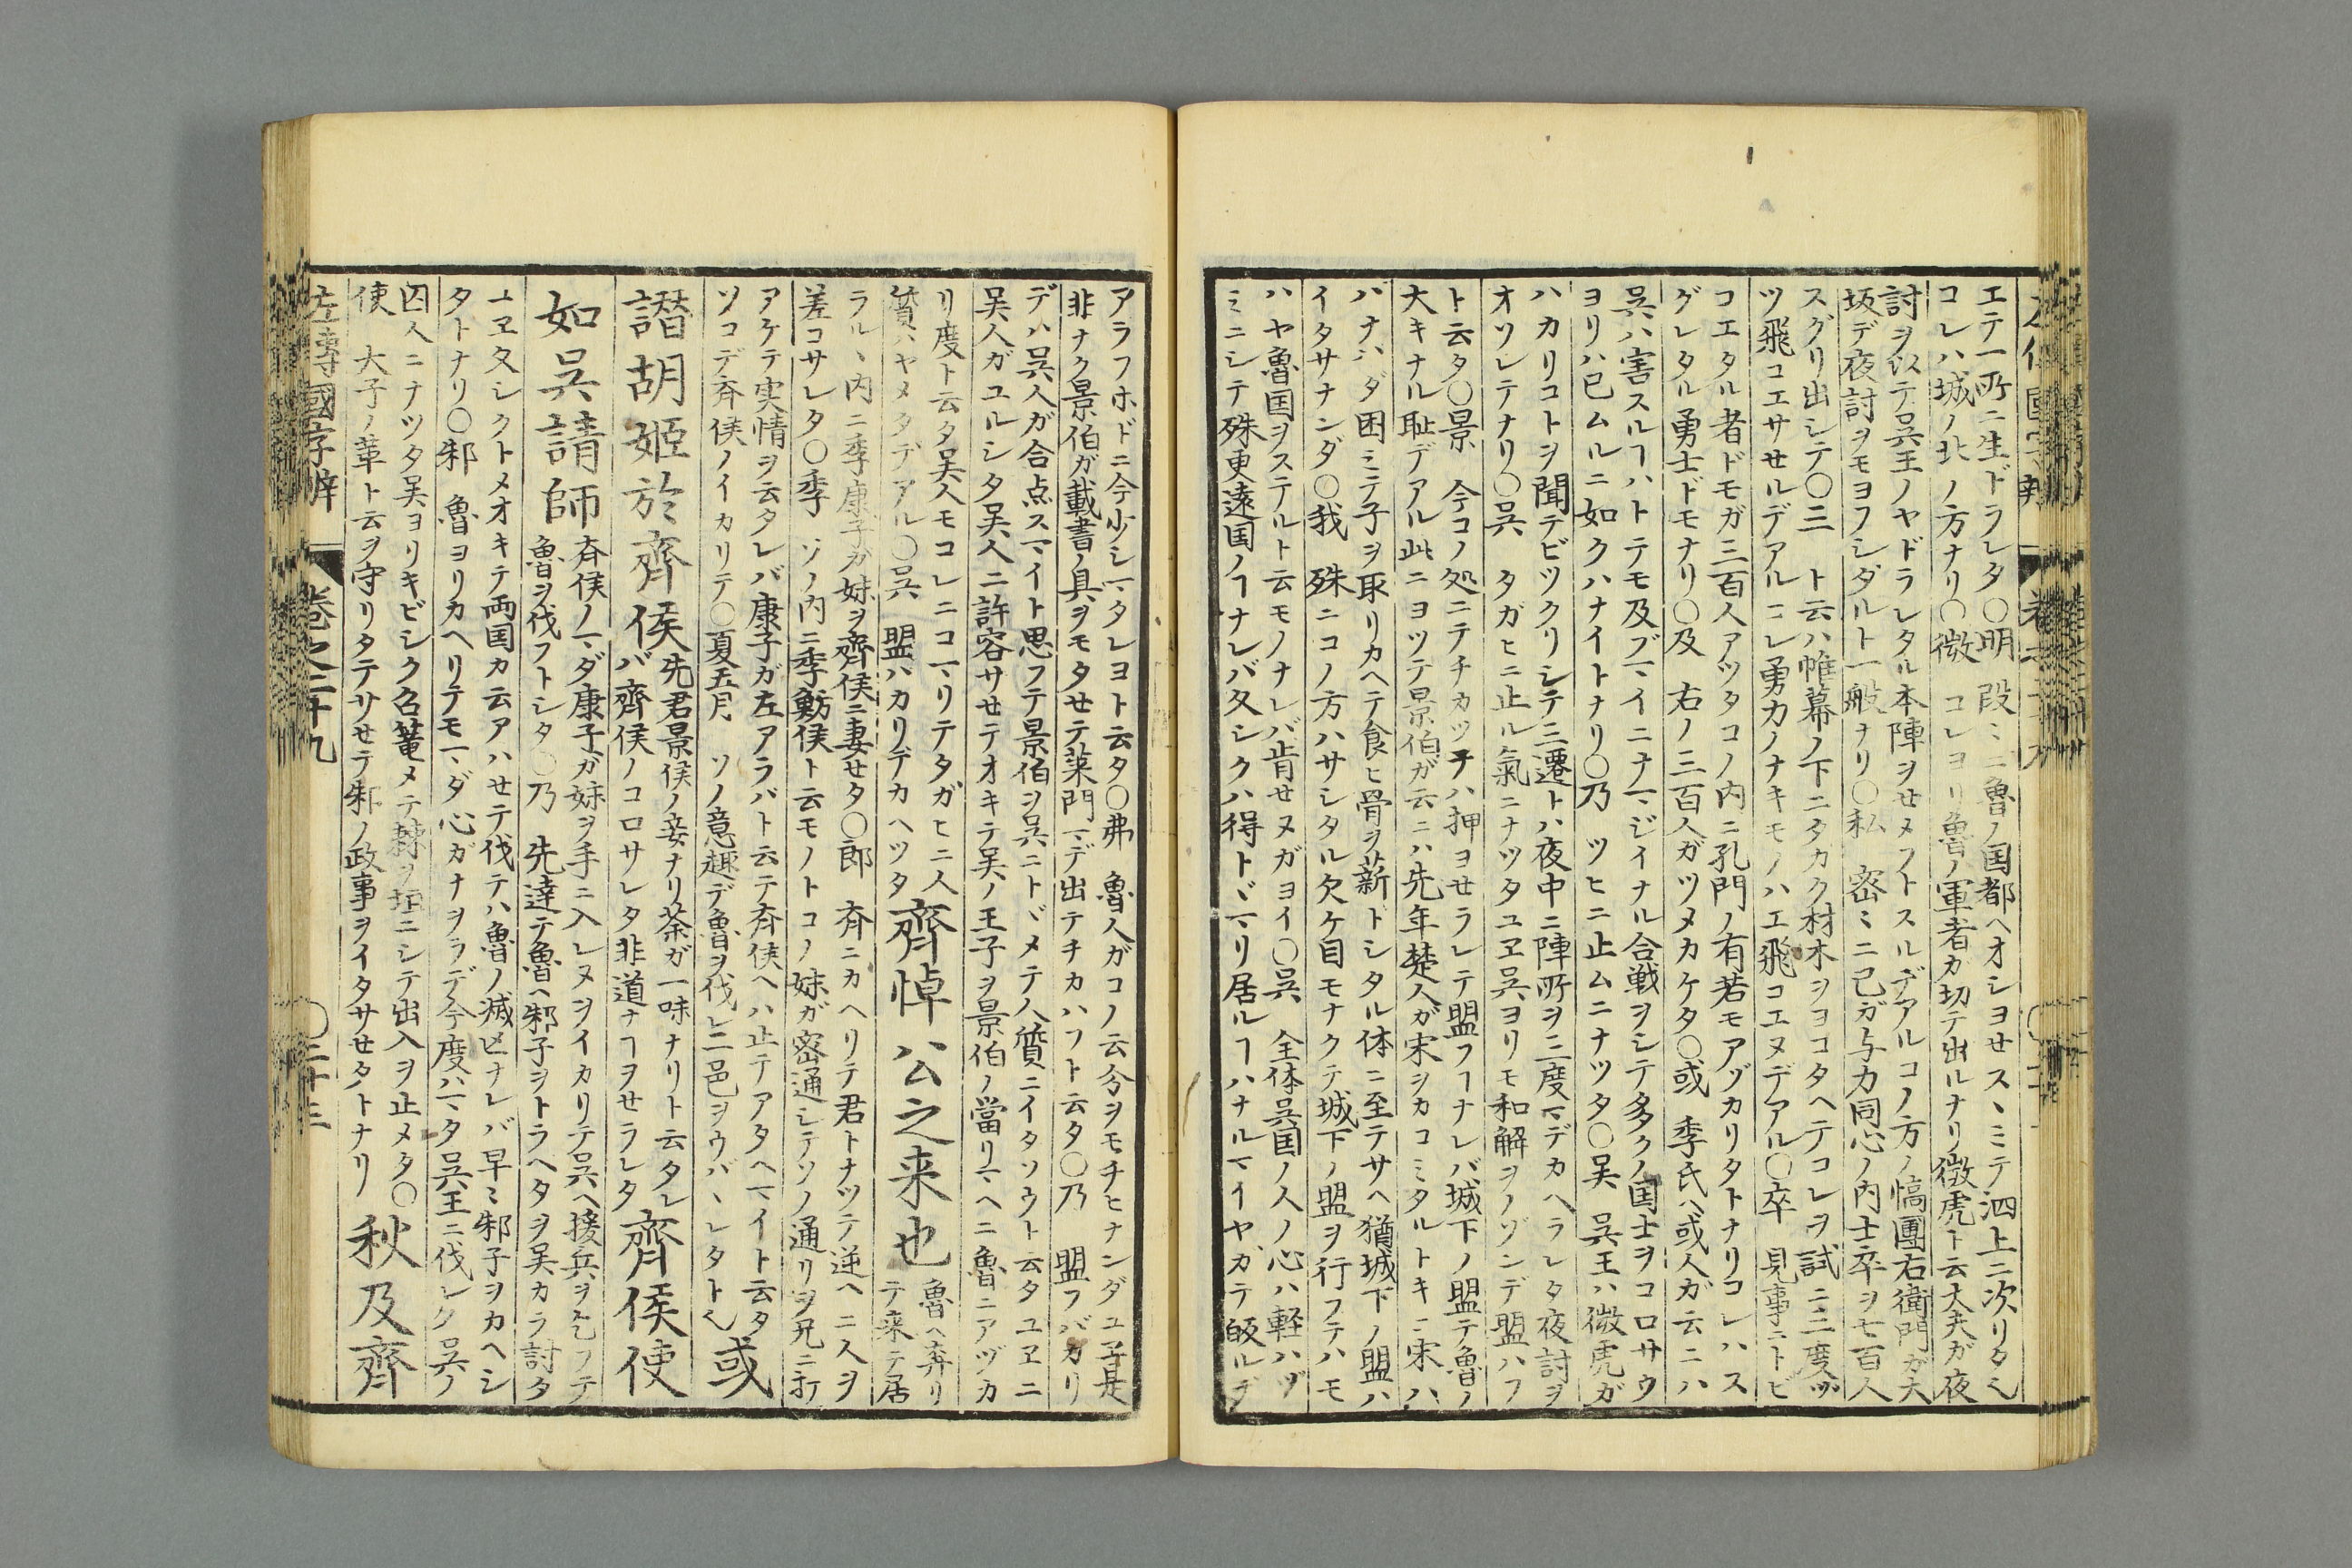 エテ一所ニ生ドラレタ〇明 段〻ニ魯ノ国都ヘオシヨセスヽミテ泗上ニ次リタ〵
コレハ城ノ北ノ方ナリ〇微 コレヨリ魯ノ軍者カ切テ出ルナリ微虎ト云大夫ガ夜
討ヲ以テ呉王ノヤドラレタル本陣ヲせメフトスルデアルコノ方ノ塙團右衛門ガ大
坂デ夜討ヲモヨフシダルト一般ナリ〇私 密〻ニ己ガ与力同心ノ内士卒ヲ七百人
スグリ出シテ〇三 ト云ハ帷幕ノ下ニタカク材木ヲヨコタヘテコレヲ試ニ三度ヅ
ツ飛コエサセルデアルコレ勇力ノナキモノハエ飛コエヌデアル〇卒 見事ニトビ
コエタル者ドモガ三百人アツタコノ内ニ孔門ノ有若モアヅカリタトナリコレハス
グレタル勇士ドモナリ〇及 右ノ三百人ガツメカケタ〇或 季氏ヘ或人ガ云ニハ
呉ハ害スルヿハトテモ及ブマイニナマジイナル合戦ヲシテ多クノ国士ヲコロサウ
ヨリハ已ムルニ如クハナイトナリ〇乃 ツヒニ止ムニナツタ〇吴 呉王ハ微虎ガ
ハカリコトヲ聞テビツクリシテ三遷トハ夜中ニ陣所ヲ三度マデカヘラレタ夜討ヲ
オソレテナリ〇呉 タガヒニ止ル氣ニナツタユヱ呉ヨリモ和解ヲノゾンデ盟ハフ
ト云タ〇景 今コノ処ニテチカツチハ押ヨセラレテ盟フヿナレバ城下ノ盟テ魯ノ
大キナル恥デアル此ニヨツテ景伯ガ云ニハ先年楚人ガ宋ヲカコミタルトキニ宋ハ
ハナハダ困ミテ子ヲ取リカヘテ食ヒ骨ヲ薪トシタル体ニ至テサヘ猶城下ノ盟ハ
イタサナンダ〇我 殊ニコノ方ハサシタル欠ケ目モナクテ城下ノ盟ヲ行フテハモ
ハヤ魯国ヲステルト云モノナレバ肯せヌガヨイ〇呉 全体呉国ノ人ノ心ハ軽ハヅ
ミニシテ殊更遠国ノヿナレバ久シクハ得トヾマリ居ルヿハナルマイヤガテ皈ルデ
アラフホドニ今少シマタレヨト云タ〇弗 魯人ガコノ云分ヲモチヒナンダユヱ是
非ナク景伯ガ載書ノ具ヲモタセテ莱門マデ出テチカハフト云タ〇乃 盟フバカリ
デハ呉人ガ合点スマイト思フテ景伯ヲ呉ニトヾメテ人質ニイタソウト云タユヱニ
吴人ガユルシタ吴人ニ許容サセテオキテ吴ノ王子ヲ景伯ノ當リマヘニ魯ニアヅカ
リ度ト云タ吴人モコレニコマリテタガヒニ人
質ハヤメタデアル〇呉 盟ハカリデカヘツタ
齊悼公之来也
魯ヘ奔リ
テ来テ居
ラルヽ内ニ季康子ガ妹ヲ齊侯ニ妻せタ〇郎 斉ニカヘリテ君トナツテ逆ヘニ人ヲ
差コサレタ〇季 ソノ内ニ季魴侯ト云モノトコノ妹ガ密通シテソノ通リヲ兄ニ打
アケテ実情ヲ云タレバ康子ガ左アラバト云テ斉侯ヘハ止テアタヘマイト云タ
ソコデ斉侯ノイカリテ〇夏五月 ソノ意趣デ魯ヲ伐レ二邑ヲウバヽレタト〵
或
譖胡姬於齊侯
先君景侯ノ妾ナリ荼ガ一味ナリト云タレ
バ齊侯ノコロサレタ非道ナヿヲせラレタ
齊侯使
如呉請師
斉侯ノマダ康子ガ妹ヲ手ニ入レヌヲイカリテ呉ヘ援兵ヲ乞フテ
魯ヲ伐フトシタ〇乃 先達テ魯ヘ邾子ヲトラヘタヲ吴カラ討タ
ユヱ久シクトメオキテ両国カ云アハせテ伐テハ魯ノ滅亡ナレバ早〻邾子ヲカヘシ
タトナリ〇邾 魯ヨリカヘリテモマダ心ガナヲラデ今度ハマタ呉王ニ伐レク呉ノ
囚人ニナツタ吴ヨリキビシク召篭メテ棘ヲ垣ニシテ出入ヲ止メタ〇
使 大子ノ革ト云ヲ守リタテサせテ邾ノ政事ヲイタサせタトナリ
秋及齊
左傳國字辯 巻之二十九 〇二十三